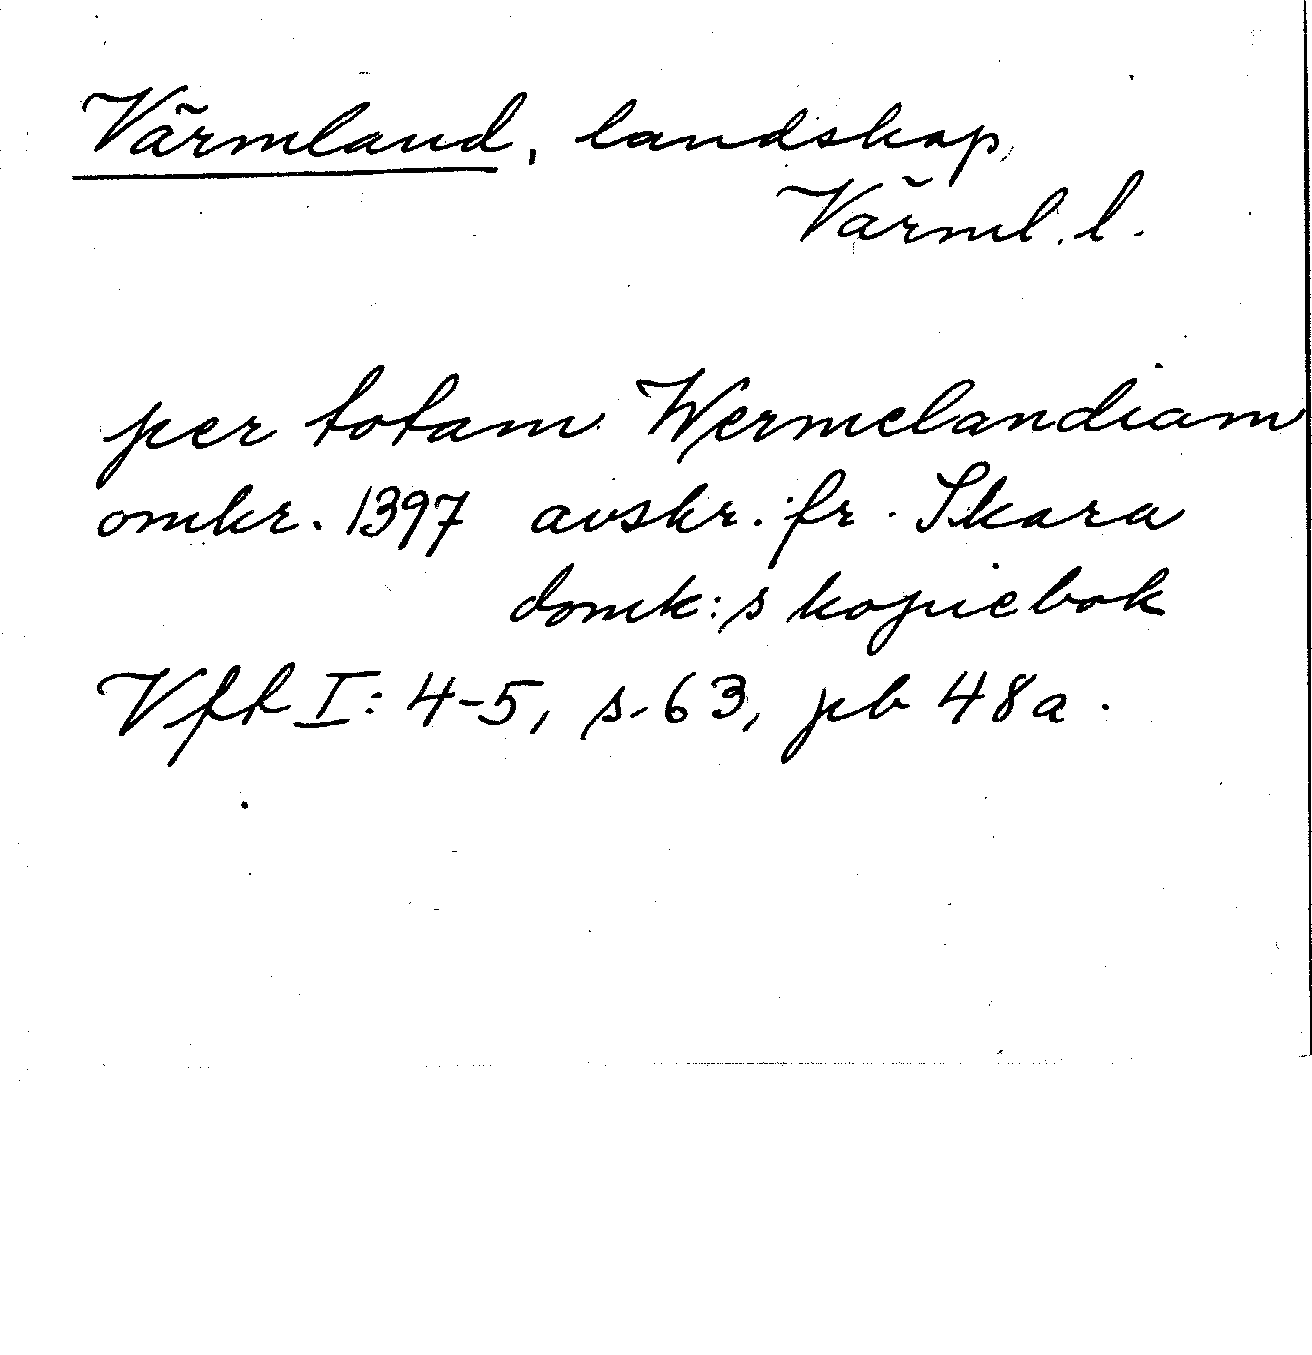 Värmland, landskap,
Värml. l.
per totam Wermelandiam
omkr. 1397 avskr. fr. Skara
domk:s kopiebok
Vff I: 4-5, s. 63, pb 48a.